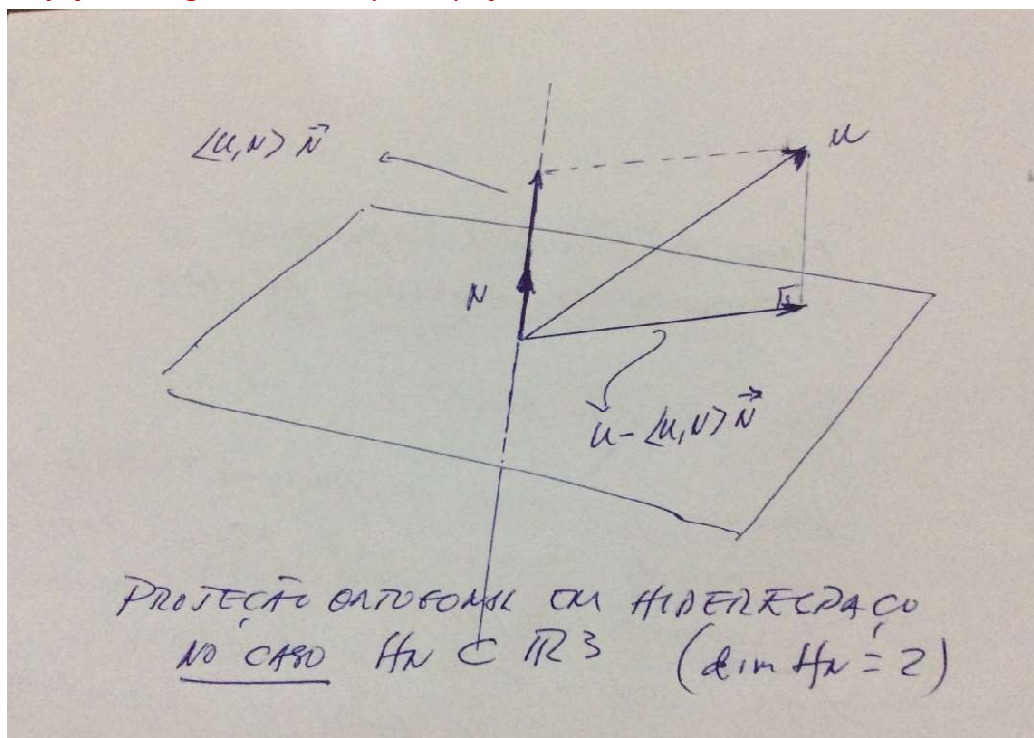 <u,N> N⃗
u
N
u⃗ - <u,N> N⃗
PROJEÇÃO ORTOGONAL EM HIPERESPAÇO
NO CASO HN ⊂ IR3 (dim HN = 2)